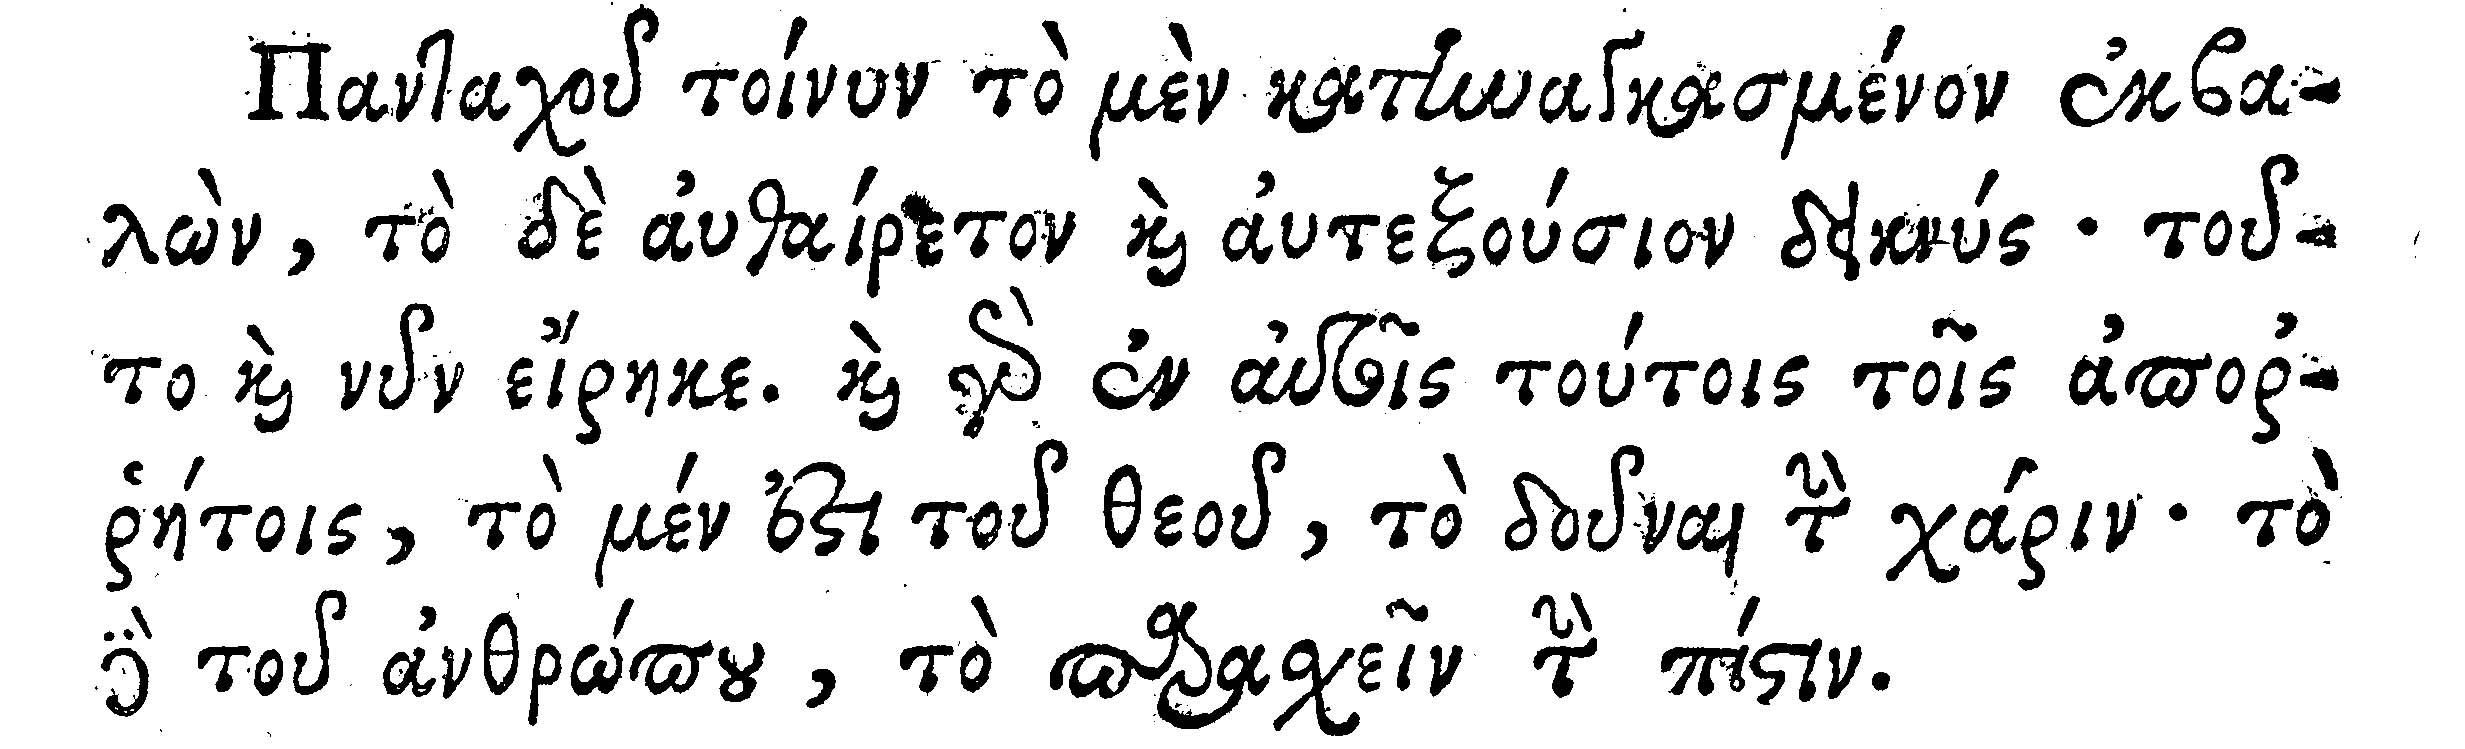 Πανταχοῦ τοίνυν τὸ μὲν κατηναγκασμένον ἐκβα-
λὼν, τὸ δὲ αὐθαίρετον καὶ αὐτεξούσιον δεικνύς· τοῦ-
το καὶ νῦν εἴρηκε. καὶ γὰρ ἐν αὐτοῖς τούτοις τοῖς ἀποῤ-
ῥήτοις, τὸ μέν ἐστι τοῦ θεοῦ, τὸ δοῦναι τὴν χάριν· τὸ
δὲ τοῦ ἀνθρώπου, τὸ παρασχεῖν τὴν πίστιν.